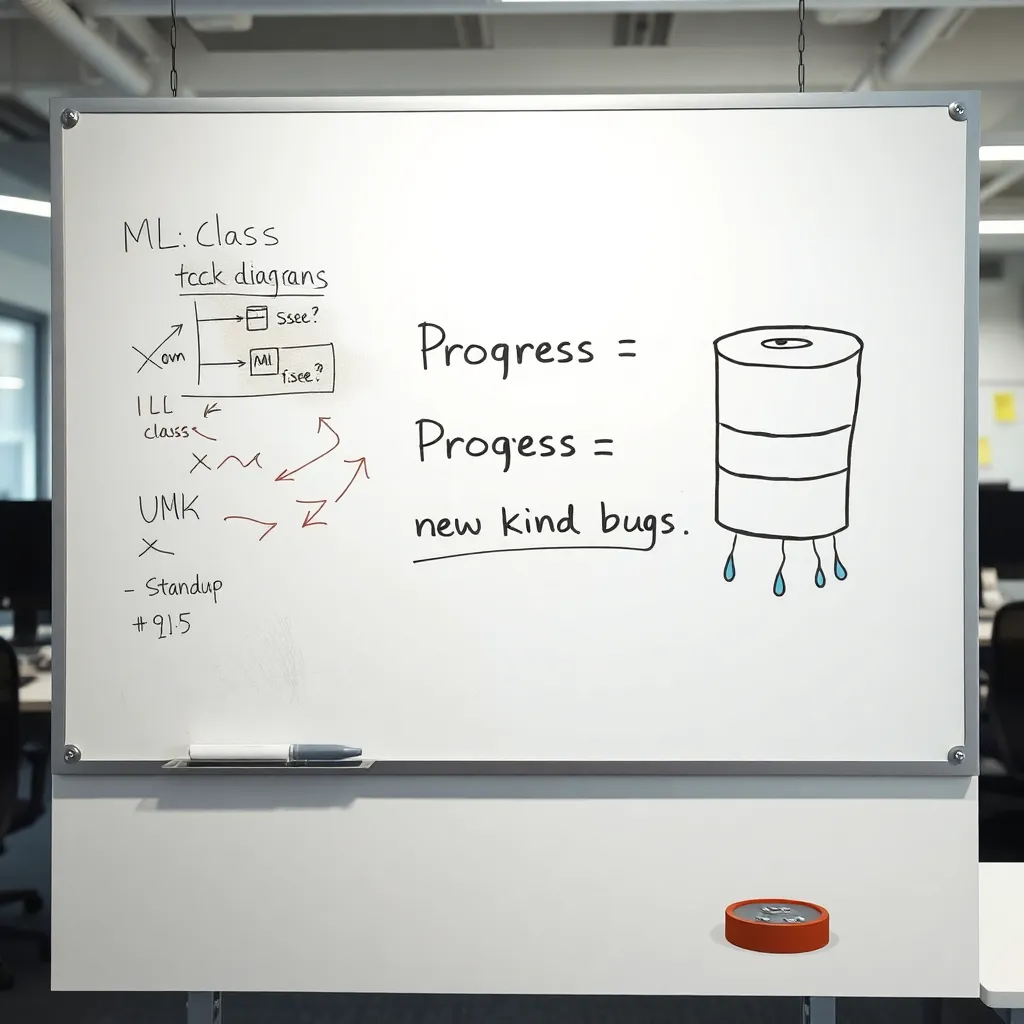 ML: Class
tcck diagrans
Ssee?
Xom
ML
fisee?
ILL
class
UMK
- Standup
# 91.5
Progress =
Progess =
new kind bugs.